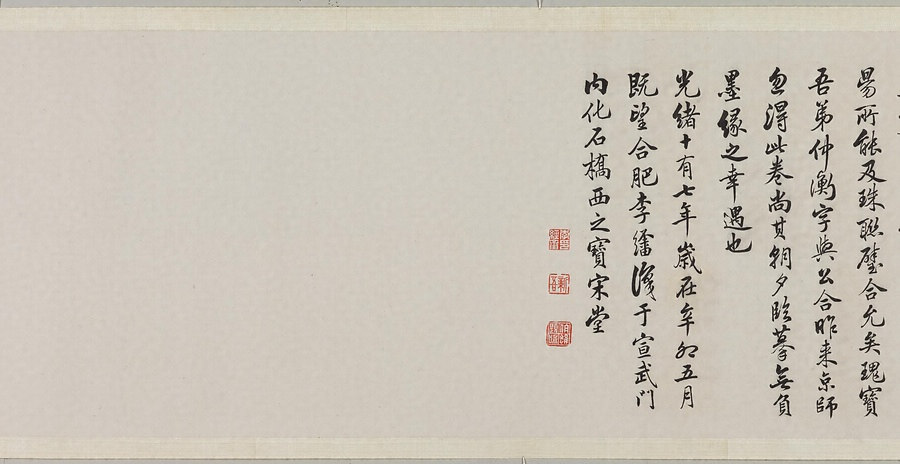 易所能及珠聯璧合允矣瑰寶
吾弟仲衡字與公合昨来京師
忽得此卷尚其朝夕臨摹無負
墨緣之幸遇也
光緒十有七年歲在辛卯五月
既望合肥李識于宣武門
内化石橋西之寶宋堂